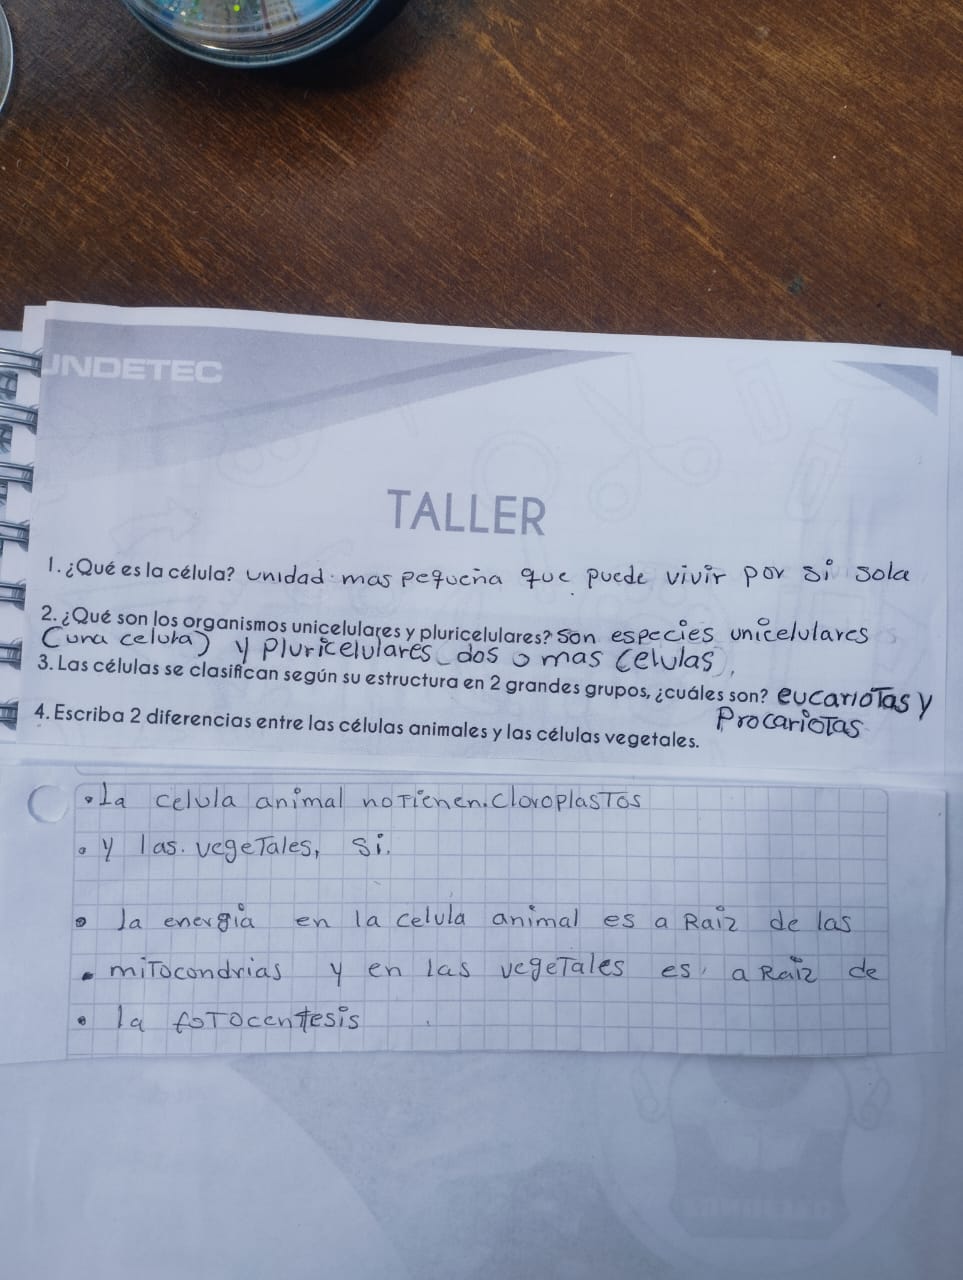 UNDETEC
TALLER
1. ¿Qué es la célula? unidad mas pequeña que puede vivir por si sola
2. ¿Qué son los organismos unicelulares y pluricelulares? son especies unicelulares
(una celula) y Pluricelulares (dos o mas celulas),
3. Las células se clasifican según su estructura en 2 grandes grupos, ¿cuáles son? eucarioTas y
ProcarioTas
4. Escriba 2 diferencias entre las células animales y las células vegetales.
• La celula animal no Tienen. CloroplasTos
• y las. vegeTales, si.
• la energia en la celula animal es a Raiz de las
• miTocondrias y en las vegeTales es, a Raiz de
• la foTocentesis